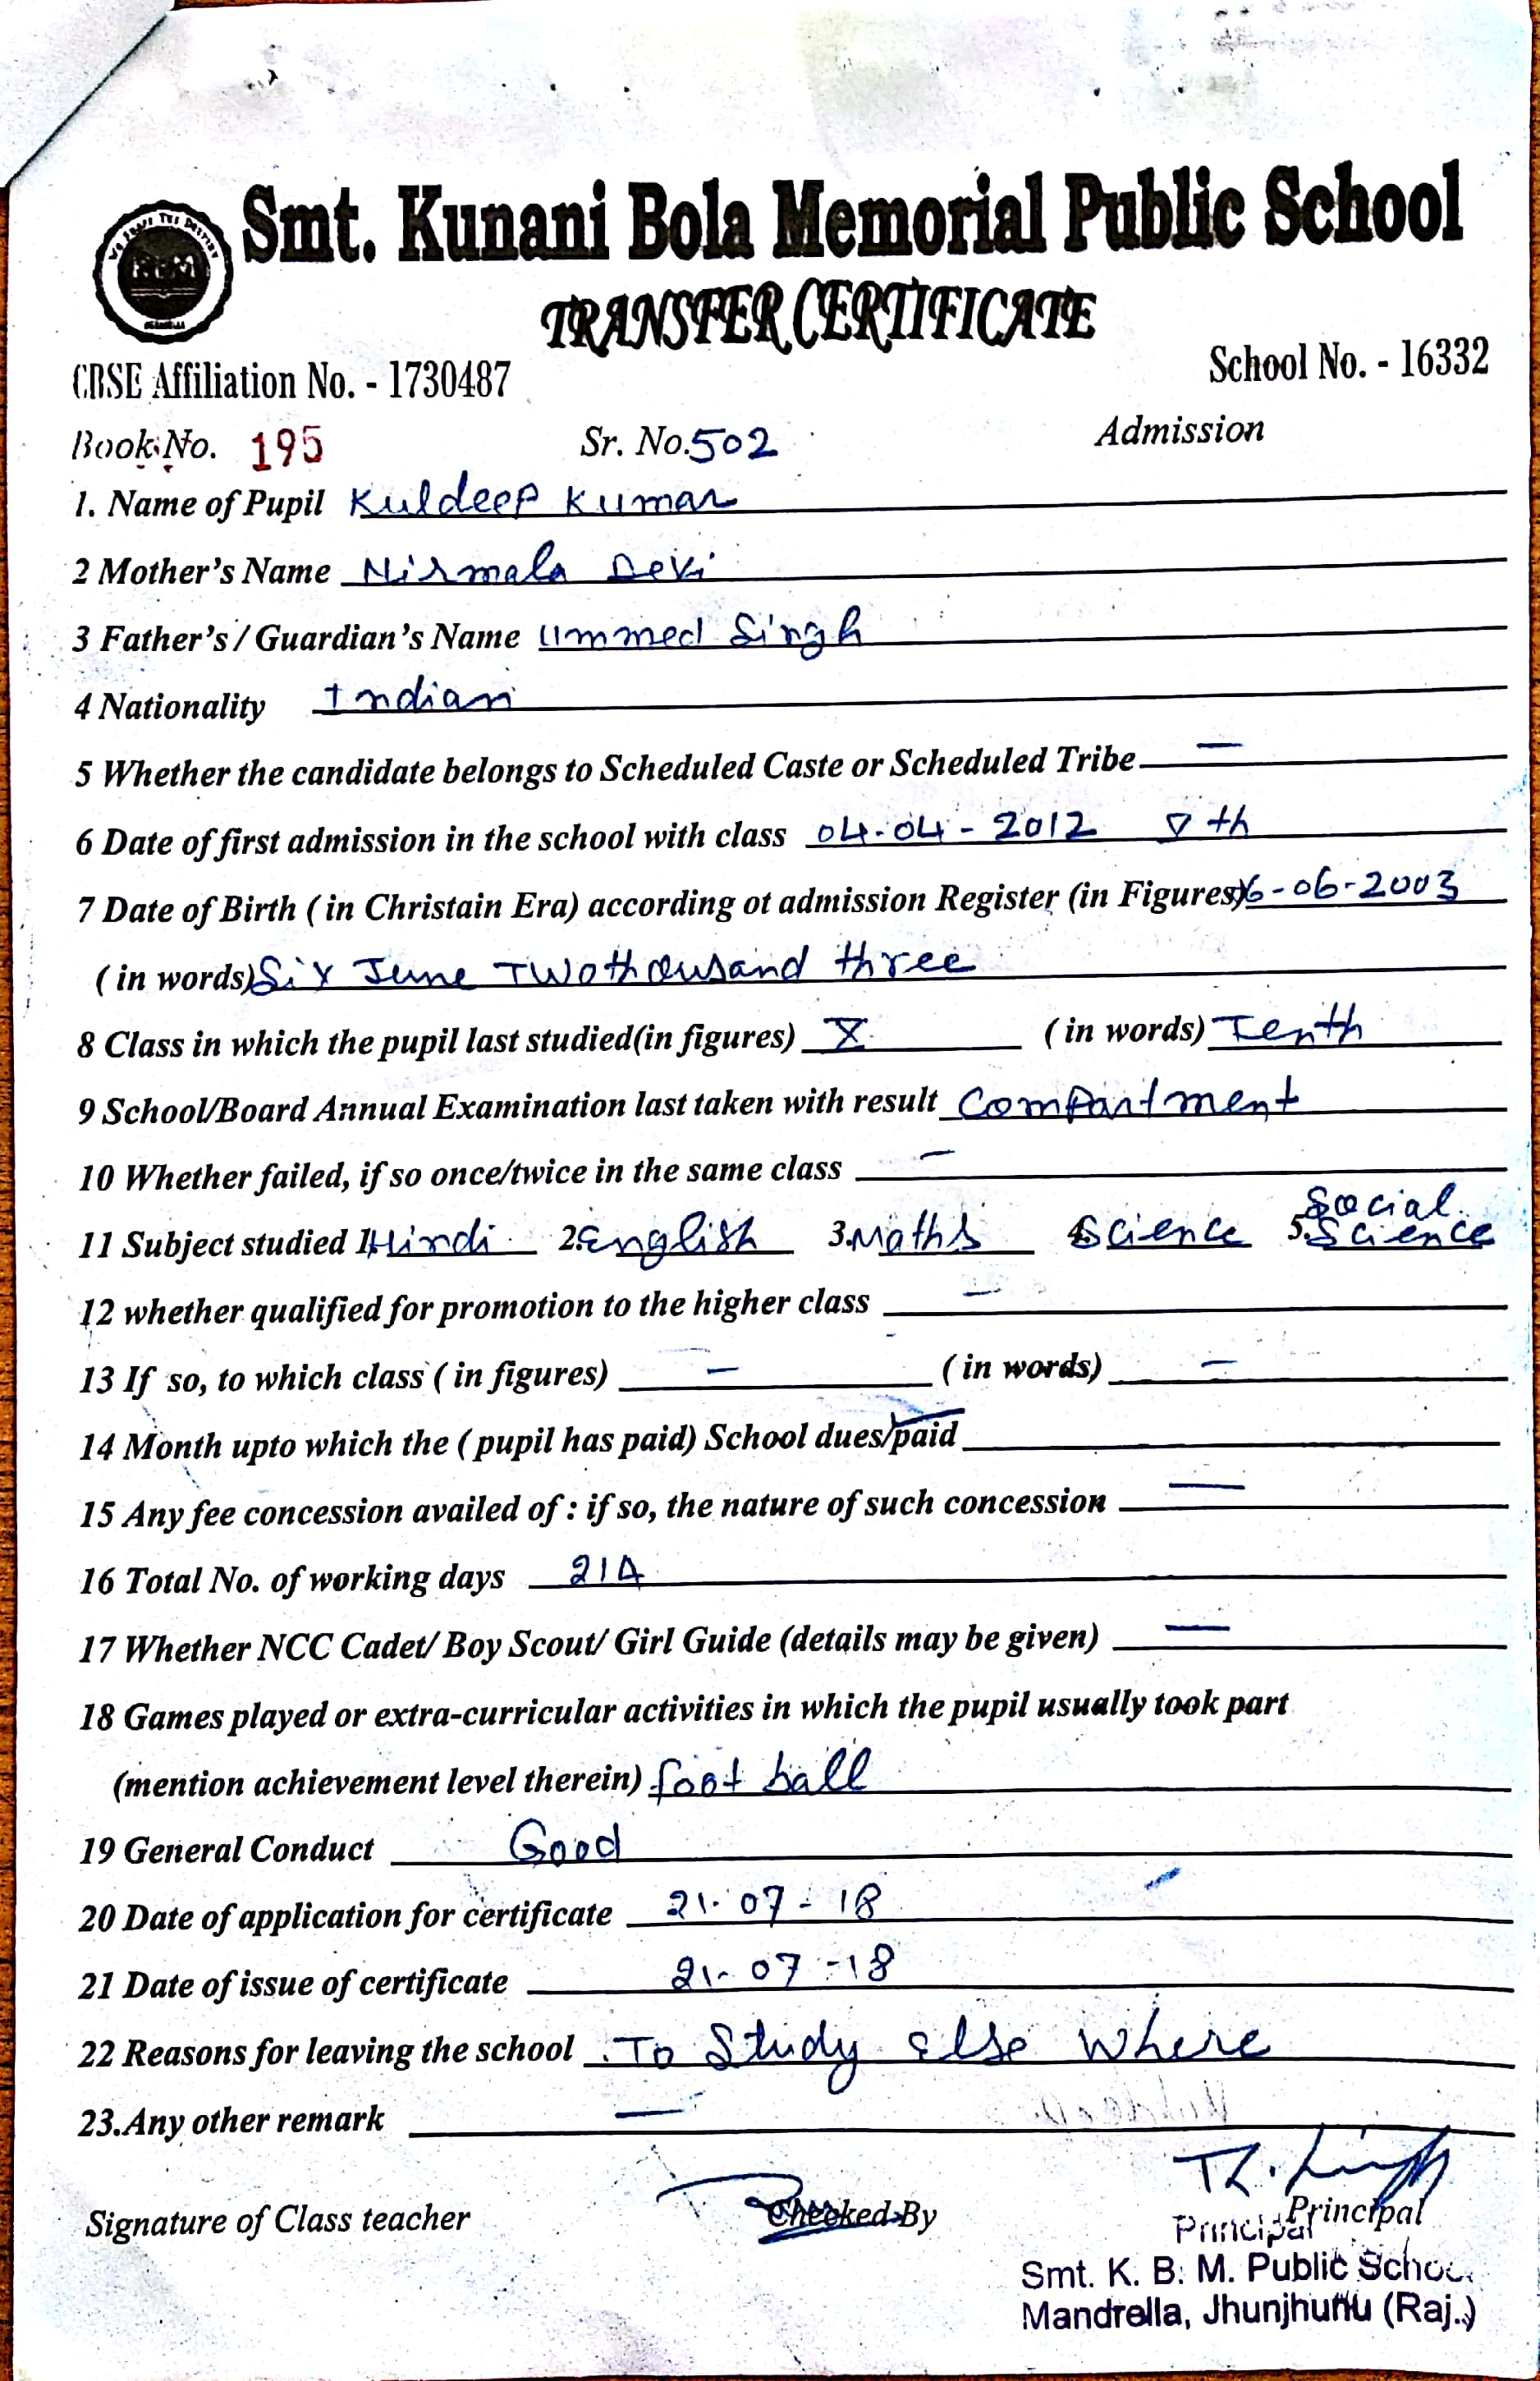 Smt. Kunani Bola Memorial Public School
TRANSFER CERTIFICATE
CBSE Affiliation No. - 1730487 School No. - 16332
Book No. 195 Sr. No. 502 Admission
1. Name of Pupil Kuldeep Kumar
2 Mother's Name Nirmala Devi
3 Father's / Guardian's Name Ummed Singh
4 Nationality Indian
5 Whether the candidate belongs to Scheduled Caste or Scheduled Tribe —
6 Date of first admission in the school with class 04-04-2012 Vth
7 Date of Birth ( in Christain Era) according ot admission Register (in Figures) 6-06-2003
( in words) Six June Twothousand three
8 Class in which the pupil last studied(in figures) X ( in words) Tenth
9 School/Board Annual Examination last taken with result Compartment
10 Whether failed, if so once/twice in the same class —
11 Subject studied 1. Hindi 2. English 3. Maths 4. Science 5. Social Science
12 whether qualified for promotion to the higher class —
13 If so, to which class ( in figures) — ( in words) —
14 Month upto which the ( pupil has paid) School dues/paid
15 Any fee concession availed of : if so, the nature of such concession —
16 Total No. of working days 214
17 Whether NCC Cadet/ Boy Scout/ Girl Guide (details may be given) —
18 Games played or extra-curricular activities in which the pupil usually took part
(mention achievement level therein) foot ball
19 General Conduct Good
20 Date of application for certificate 21-07-18
21 Date of issue of certificate 21-07-18
22 Reasons for leaving the school To Study else where
23.Any other remark —
Signature of Class teacher Checked By Principal
Principal
Smt. K. B. M. Public School
Mandrella, Jhunjhunu (Raj.)